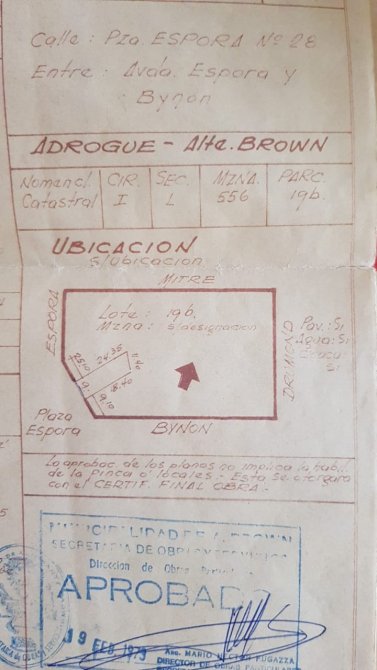 Calle: Pza. ESPORA Nº 28
Entre: Avda. Espora y
Bynon
ADROGUE - Alte. BROWN
Nomencl. Catastral
CIR. I
SEC. L
MZNA. 556
PARC. 19b.
UBICACION
S/UBICACION
MITRE
ESPORA
Lote: 19b.
Mzna: s/designacion
DRUMOND
Pav.: Si
Agua: Si
Si
24.35
9.10
Plaza
Espora
BYNON
La aprobac. de los planos no implica la habil.
de la finca ó locales - Esta se otorgara
con el CERTIF. FINAL OBRA.-
MUNICIPALIDAD DE A. BROWN
SECRETARIA DE OBRAS Y SERVICIOS
Direccion de Obras
APROBADO
19 FEB. 1973
MARIO FUGAZZA
DIRECTOR DE OBRAS PARTICULARES